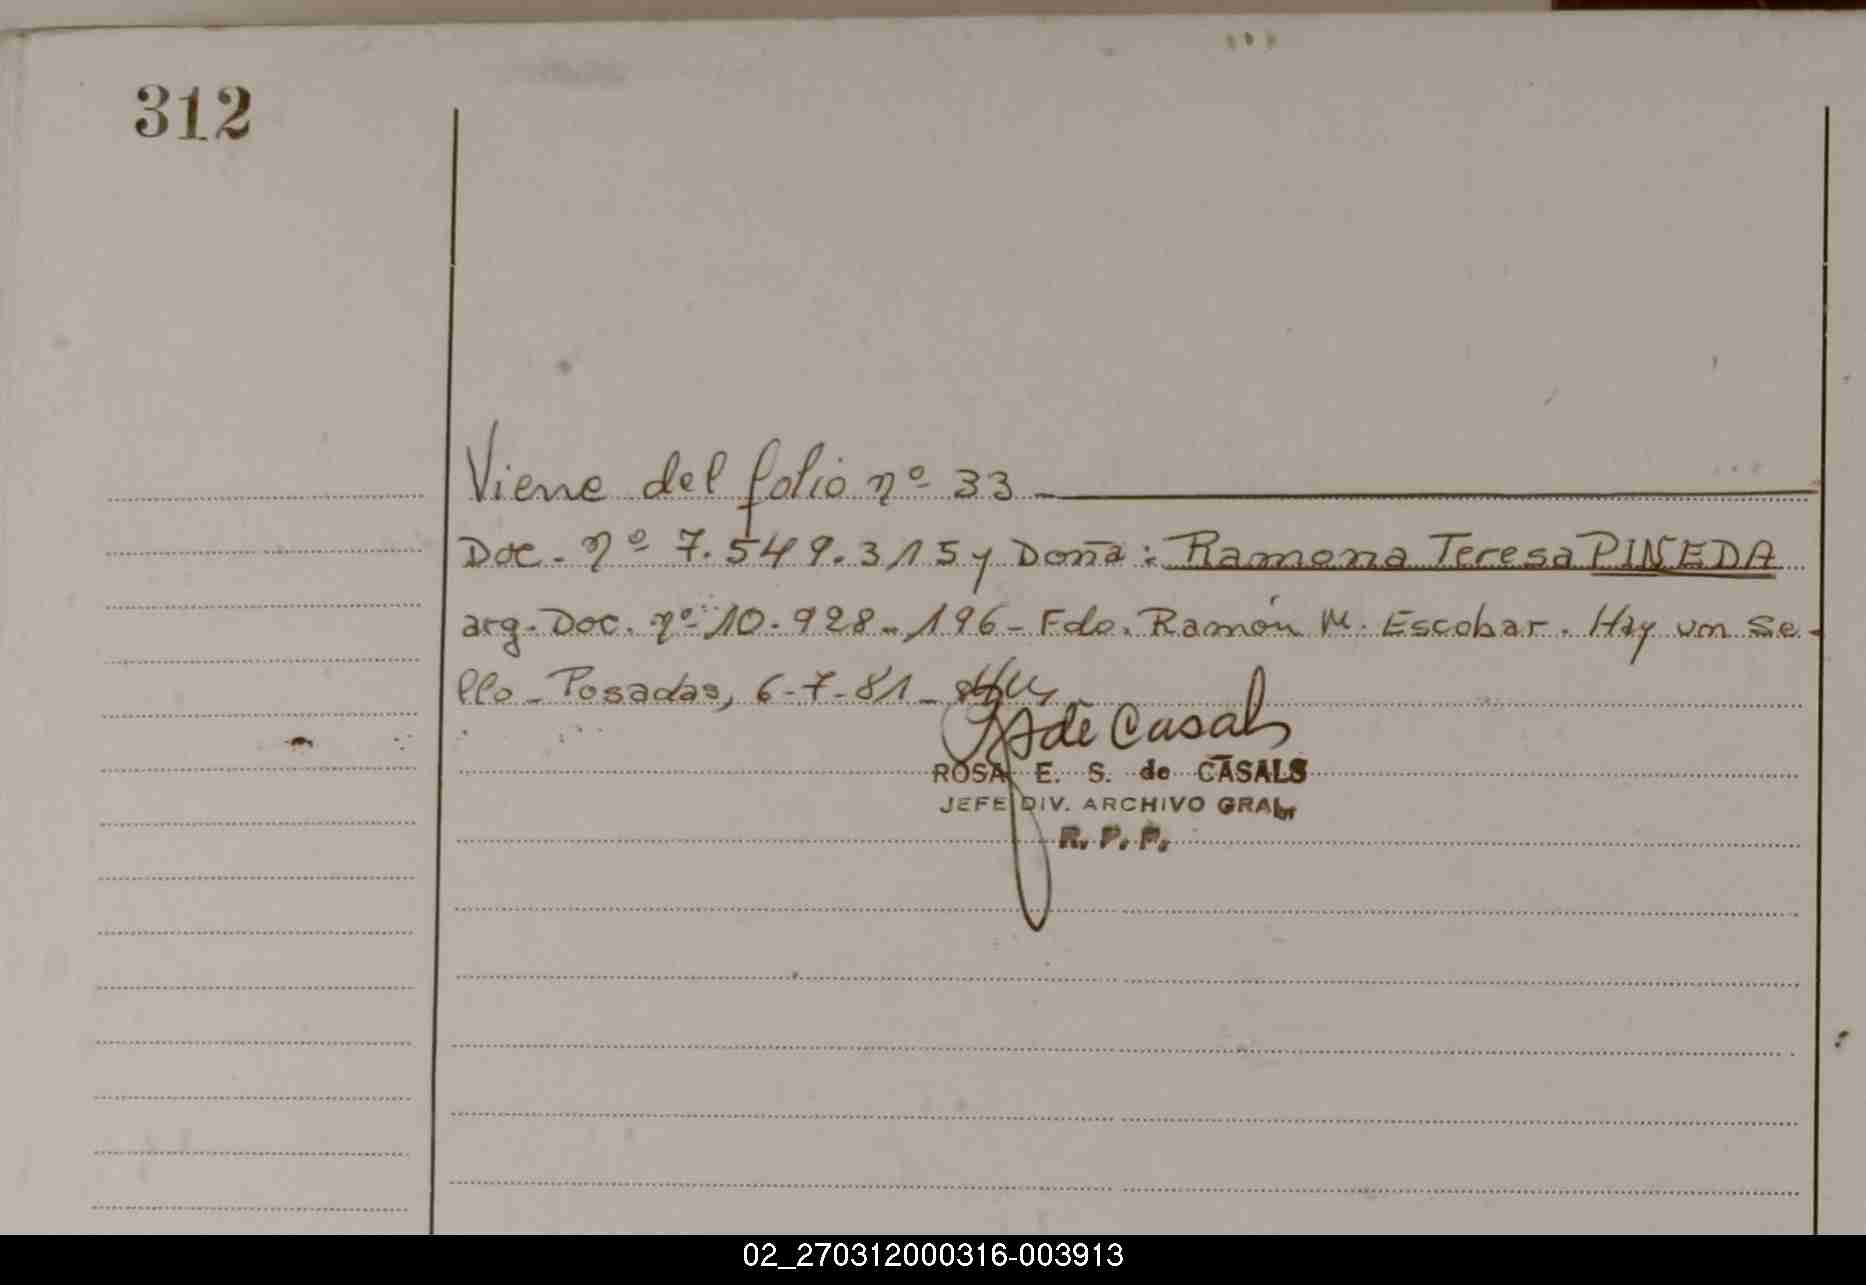 312
Viene del folio nº 33 -
Doc. nº 7.549.315 y Doña: Ramona Teresa PINEDA
arg. Doc. nº 10.928.196 - Fdo. Ramón M. Escobar. Hay un se-
llo - Posadas, 6-7-81 -
de Casals
ROSA E. S. de CASALS
JEFE DIV. ARCHIVO GRAL
R. P. P.
02_270312000316-003913